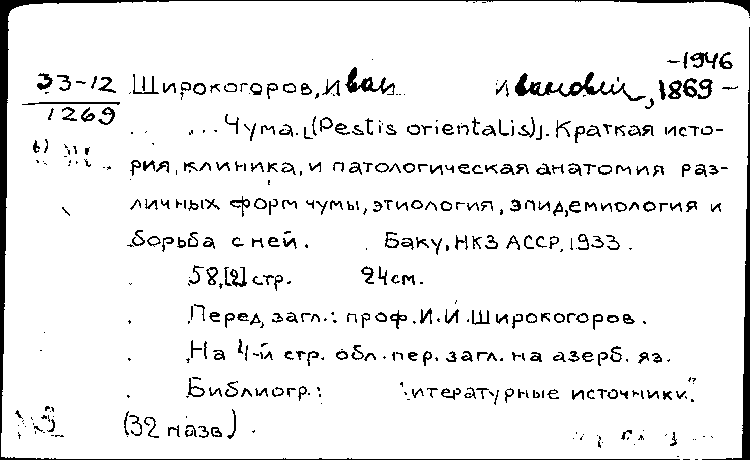 -1946
33-12 Широкогоров, Иван Иванович, 1869-
1269
Чума [(Pestis orientalis)]. Краткая исто-
рия, клиника, и патологическая анатомия раз-
личных форм чумы, этиология, эпидемиология и
борьба с ней. Баку, НКЗ АССР, 1933.
58, [2] стр. 24 см.
Перед загл.: проф. И.И. Широкогоров.
На 4-й стр. обл. пер. загл. на азерб. яз.
Библиогр.: источники."
(32 назв.).